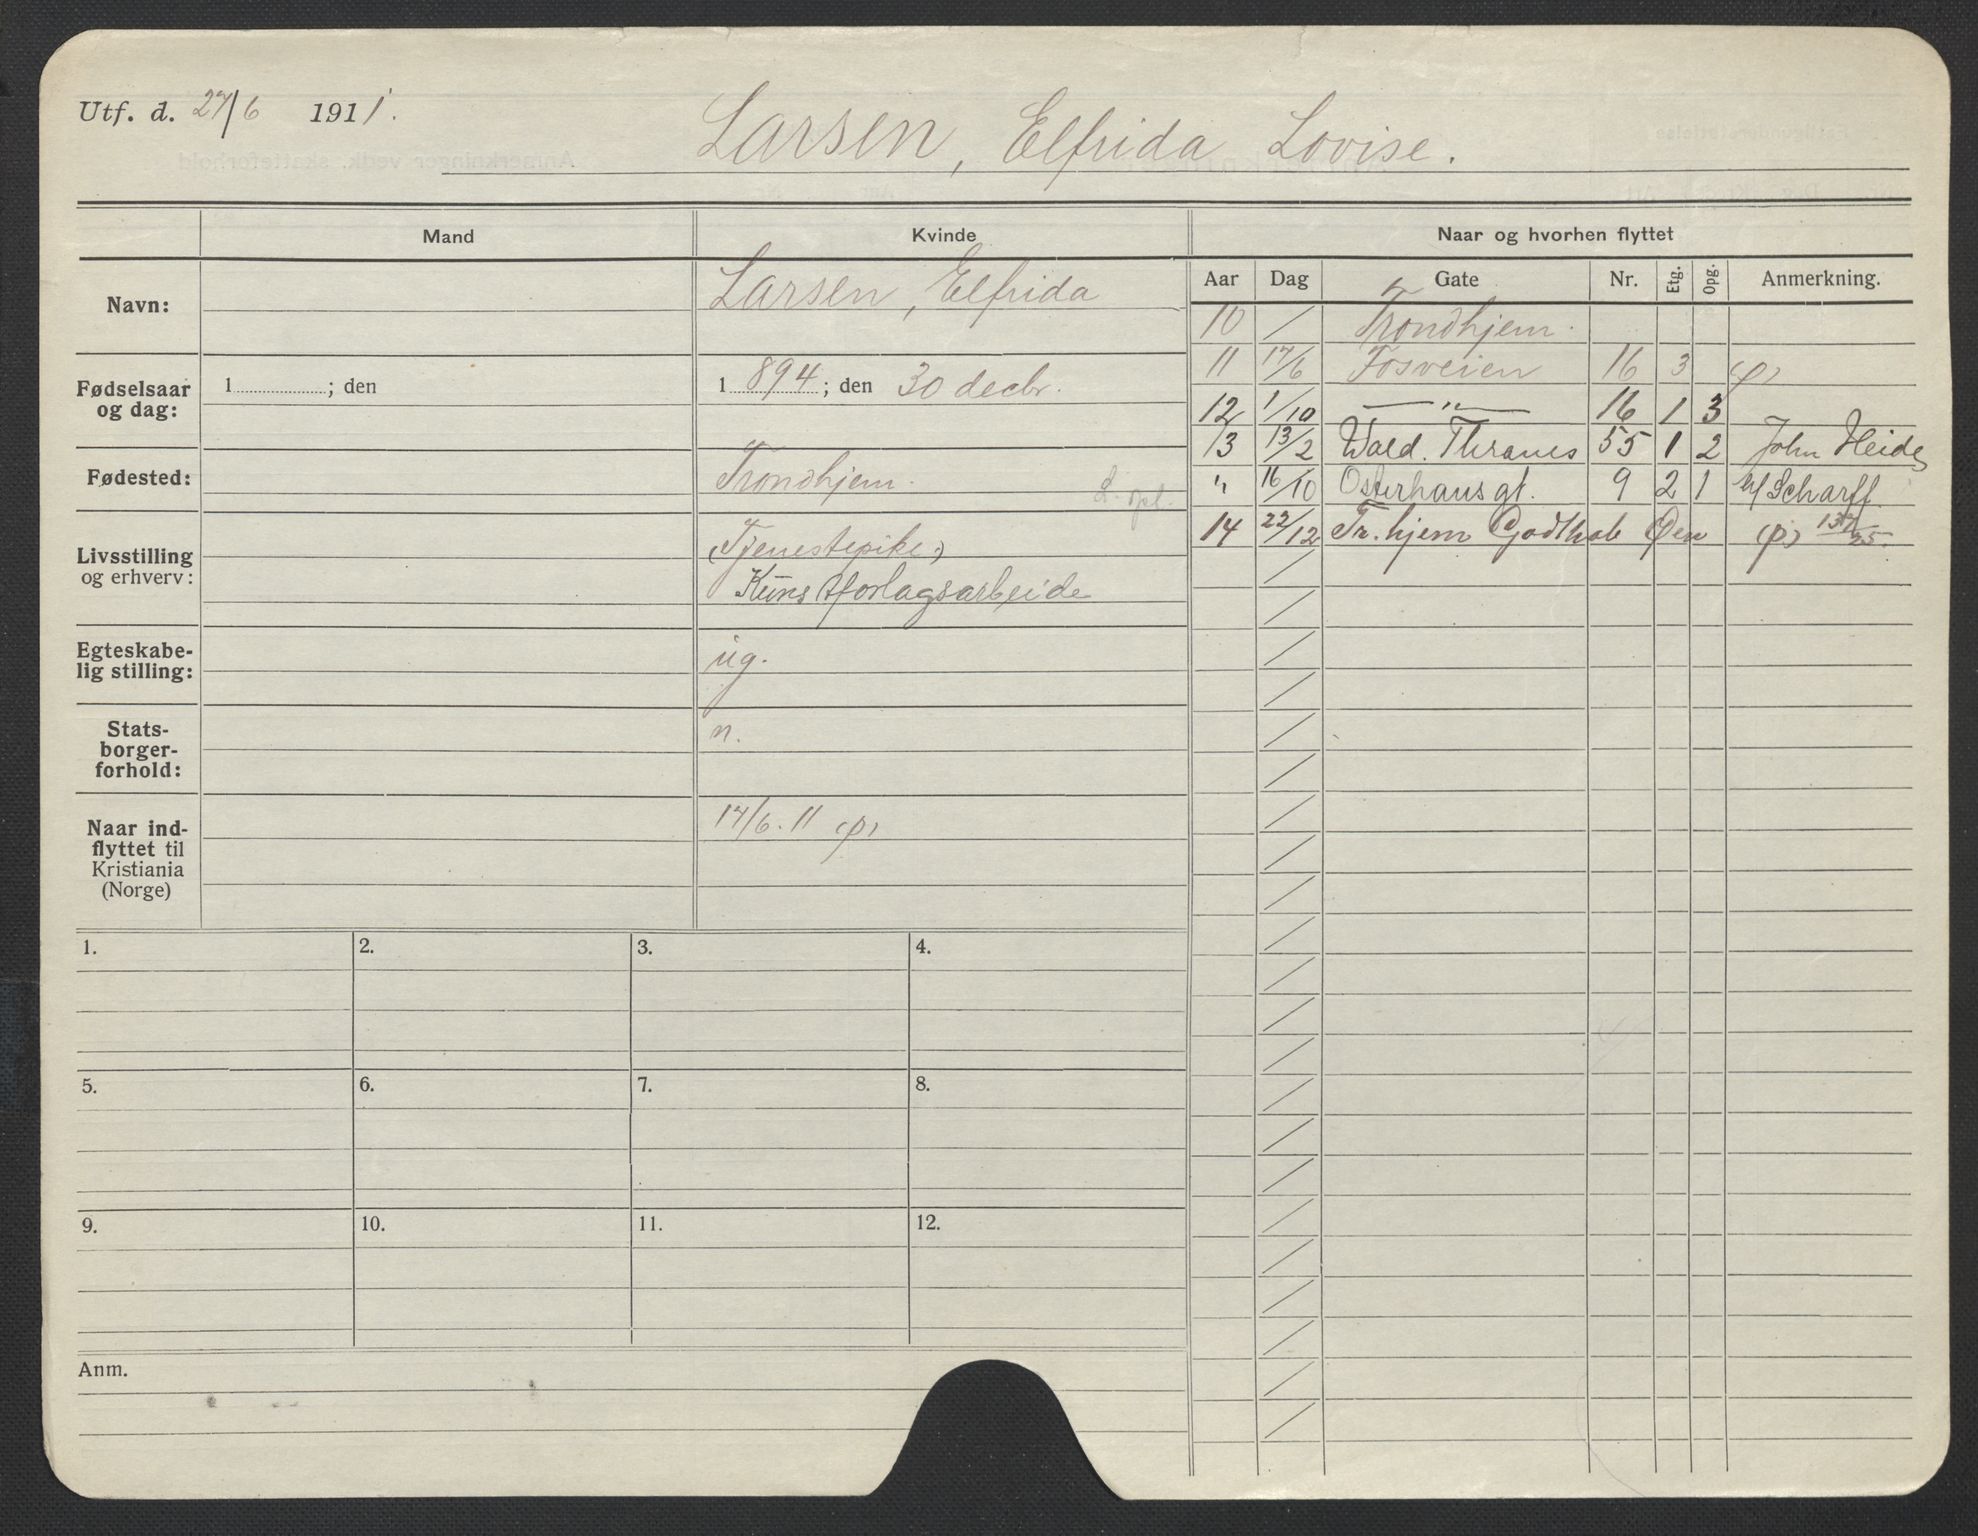 Utf. d. 27/6 1911.
Larsen, Elfrida Lovise.
Mand
Kvinde
Naar og hvorhen flyttet
Navn:
Larsen, Elfrida
Fødselsaar og dag:
1 ; den
1 894 ; den 30 decbr.
Fødested:
Trondhjem.
Livsstilling og erhverv:
(Tjenestepike)
Kunstforlagsarbeide
Egteskabe-
lig stilling:
ug.
Stats-
borger-
forhold:
n.
Naar ind-
flyttet til
Kristiania
(Norge)
17/6. 11 (p)
Aar Dag Gate Nr. Etg. Opg. Anmerkning.
10 / Trondhjem.
11 17/6 Fosveien 16 3 (p)
12 1/10 — " — 16 1 3
13 13/2 Wald. Thranes 55 1 2 John Heide
" 16/10 Osterhausgt. 9 2 1 h/ Scharff
14 22/12 Tr.hjem Godthab Øen (p)
1.
2.
3.
4.
5.
6.
7.
8.
9.
10.
11.
12.
Anm.